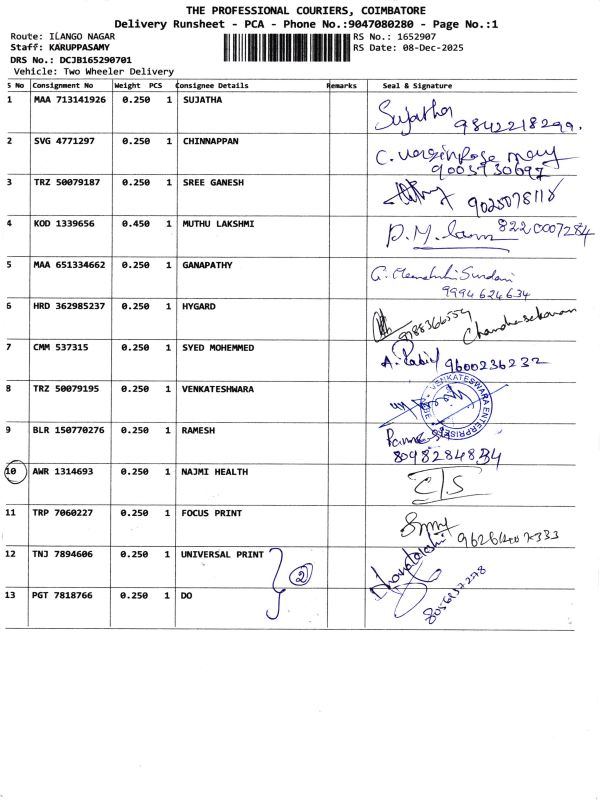 THE PROFESSIONAL COURIERS, COIMBATORE
Delivery Runsheet - PCA - Phone No.:9047080280 - Page No.:1
Route: ILANGO NAGAR RS No.: 1652907
Staff: KARUPPASAMY RS Date: 08-Dec-2025
DRS No.: DCJB165290701
Vehicle: Two Wheeler Delivery
S No Consignment No Weight PCS Consignee Details Remarks Seal & Signature
1 MAA 713141926 0.250 1 SUJATHA Sujatha
9842218299.
2 SVG 4771297 0.250 1 CHINNAPPAN
3 TRZ 50079187 0.250 1 SREE GANESH
4 KOD 1339656 0.450 1 MUTHU LAKSHMI 8220007284
5 MAA 651334662 0.250 1 GANAPATHY
9994624634
6 HRD 362985237 0.250 1 HYGARD
Chandrasekaran
7 CMM 537315 0.250 1 SYED MOHEMMED
9600236232
8 TRZ 50079195 0.250 1 VENKATESHWARA
VENKATESWARA ENTERPRISES
9 BLR 150770276 0.250 1 RAMESH
8098284834
10 AWR 1314693 0.250 1 NAJMI HEALTH C/S
11 TRP 7060227 0.250 1 FOCUS PRINT
12 TNJ 7894606 0.250 1 UNIVERSAL PRINT
2
13 PGT 7818766 0.250 1 DO